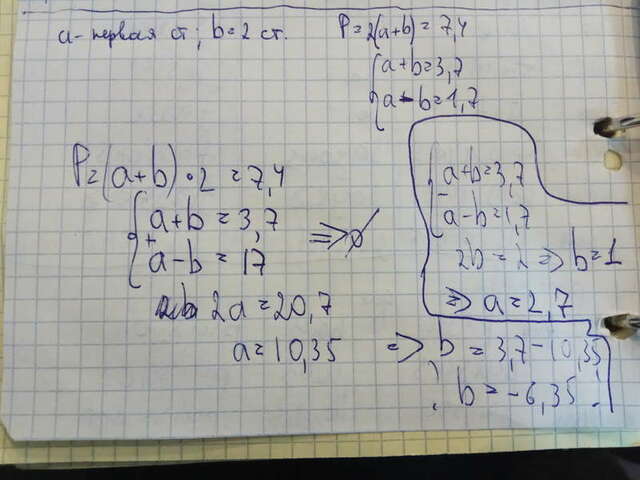 a - первая ст; b = 2 ст.
P = 2(a+b) = 7,4
a+b=3,7
a-b=1,7
P=(a+b)·2 = 7,4
a+b = 3,7
+
a-b = 17
=> ∅
2a = 20,7
a = 10,35
=> b = 3,7-10,35
b = -6,35 !
a+b=3,7
-
a-b=1,7
2b = 2 => b=1
=> a=2,7